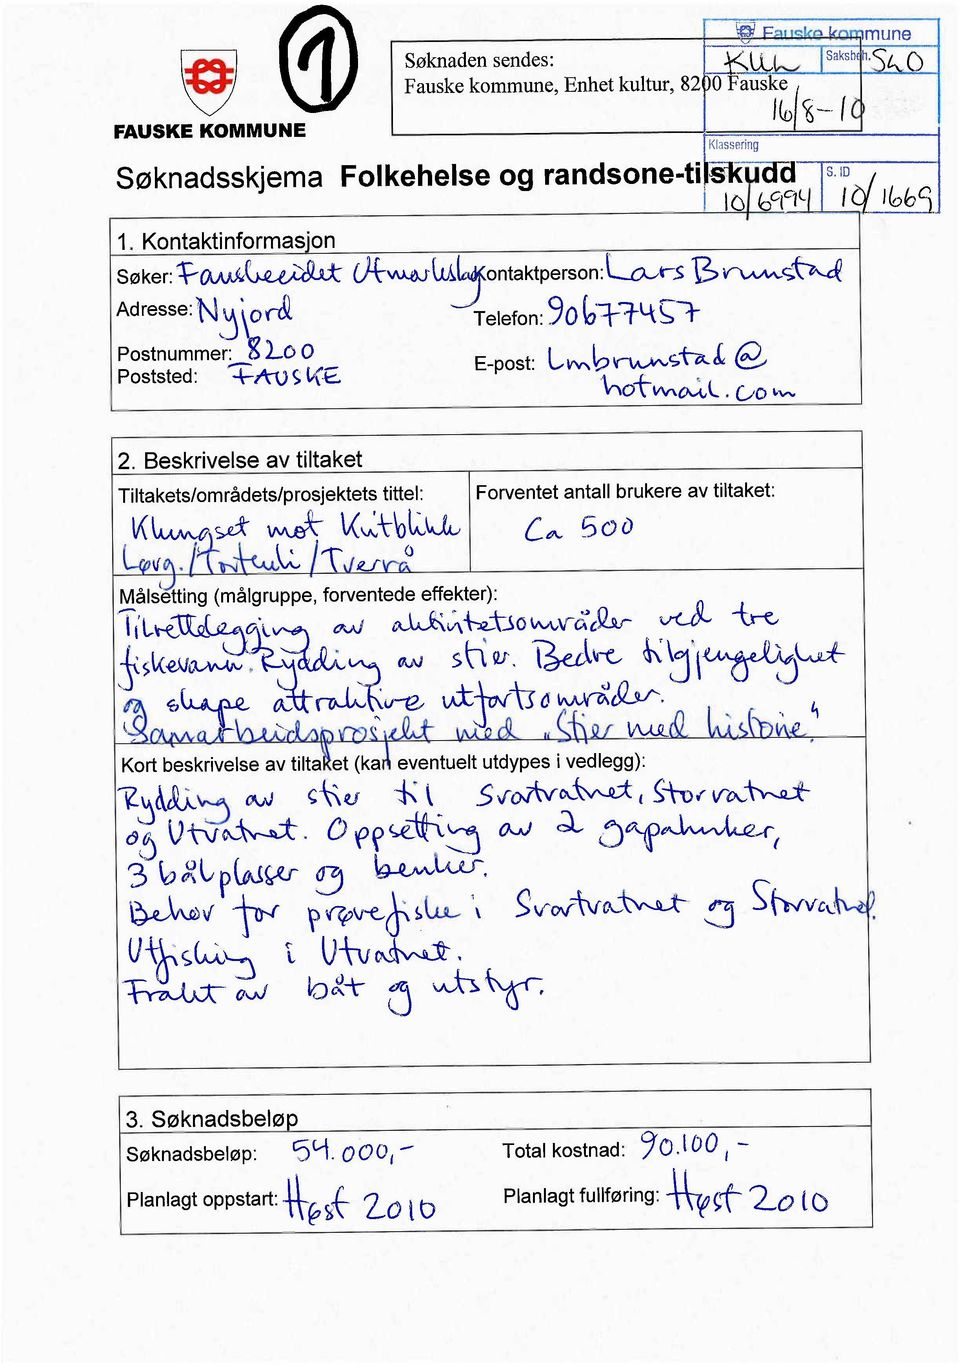 1
Søknaden sendes:
Fauske kommune, Enhet kultur, 8200 Fauske
Fauske kommune
KUL Saksbeh. SnO
16/8-10
Klassering
S. ID
10/6994 10/1669
FAUSKE KOMMUNE
Søknadsskjema Folkehelse og randsone-tilskudd
1. Kontaktinformasjon
Søker: Fauskeeidet Utmarkslag Kontaktperson: Lars Brunstad
Adresse: Nyjord Telefon: 90677457
Postnummer: 8200 E-post: Lmbrunstad@
Poststed: FAUSKE hotmail.com
2. Beskrivelse av tiltaket
Tiltakets/områdets/prosjektets tittel: Forventet antall brukere av tiltaket:
Klungset mot Kutblikk Ca 500
Løvg./Tortenli/Tverrå
Målsetting (målgruppe, forventede effekter):
Tilrettelegging av aktivitetsområder ved tre
fiskevann. Rydding av stier. Bedre tilgjengelighet
og skape attraktive utfartsområder.
Samarbeidsprosjekt med "Stier med historie"
Kort beskrivelse av tiltaket (kan eventuelt utdypes i vedlegg):
Rydding av stier til Svartvatnet, Storvatnet
og Utvatnet. Oppsetting av 2 gapahuker,
3 bålplasser og benker.
Behov for prøvefiske i Svartvatnet og Storvatnet.
Utfisking i Utvatnet.
Frakt av båt og utstyr.
3. Søknadsbeløp
Søknadsbeløp: 54.000,- Total kostnad: 90.100,-
Planlagt oppstart: Høst 2010 Planlagt fullføring: Høst 2010